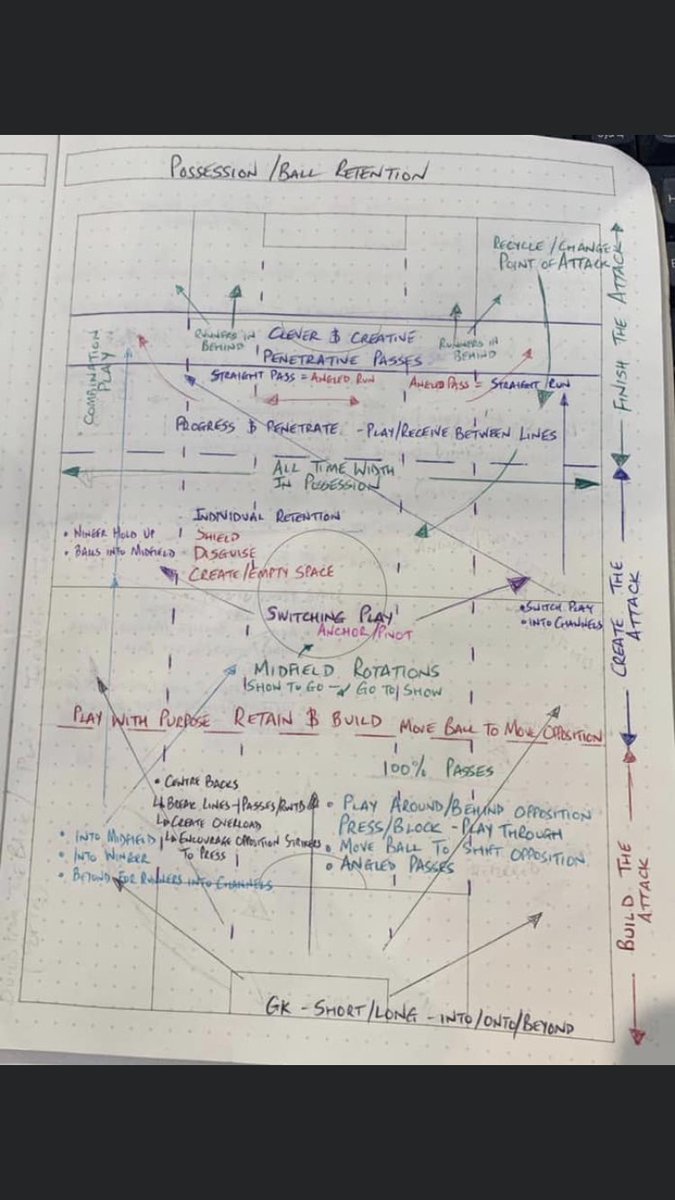 POSSESSION/BALL RETENTION
RECYCLE/CHANGE
POINT OF ATTACK
FINISH THE ATTACK
COMBINATION
PLAY
RUNNERS IN
BEHIND
CLEVER & CREATIVE
PENETRATIVE PASSES
RUNNERS IN
BEHIND
STRAIGHT PASS = ANGLED RUN
ANGLED PASS = STRAIGHT RUN
PROGRESS & PENETRATE - PLAY/RECEIVE BETWEEN LINES
ALL TIME WIDTH
IN POSSESSION
INDIVIDUAL RETENTION
• WINGER HOLD UP
SHIELD
• BALLS INTO MIDFIELD
DISGUISE
CREATE/EMPTY SPACE
CREATE THE
ATTACK
SWITCHING PLAY
• SWITCH PLAY
• INTO CHANNELS
ANCHOR/PIVOT
MIDFIELD ROTATIONS
SHOW TO GO - GO TO SHOW
PLAY WITH PURPOSE RETAIN & BUILD MOVE BALL TO MOVE OPPOSITION
100% PASSES
• CENTRE BACKS
BREAK LINES - PASSES/RWTB
CREATE OVERLOAD
ENCOURAGE OPPOSITION STRIKERS
TO PRESS
• PLAY AROUND/BEHIND OPPOSITION
PRESS/BLOCK - PLAY THROUGH
• MOVE BALL TO SHIFT OPPOSITION
• ANGLED PASSES
• INTO MIDFIELD
• INTO WINGER
• BEYOND FOR RUNNERS INTO CHANNELS
BUILD THE
ATTACK
GK - SHORT/LONG - INTO/ONTO/BEYOND